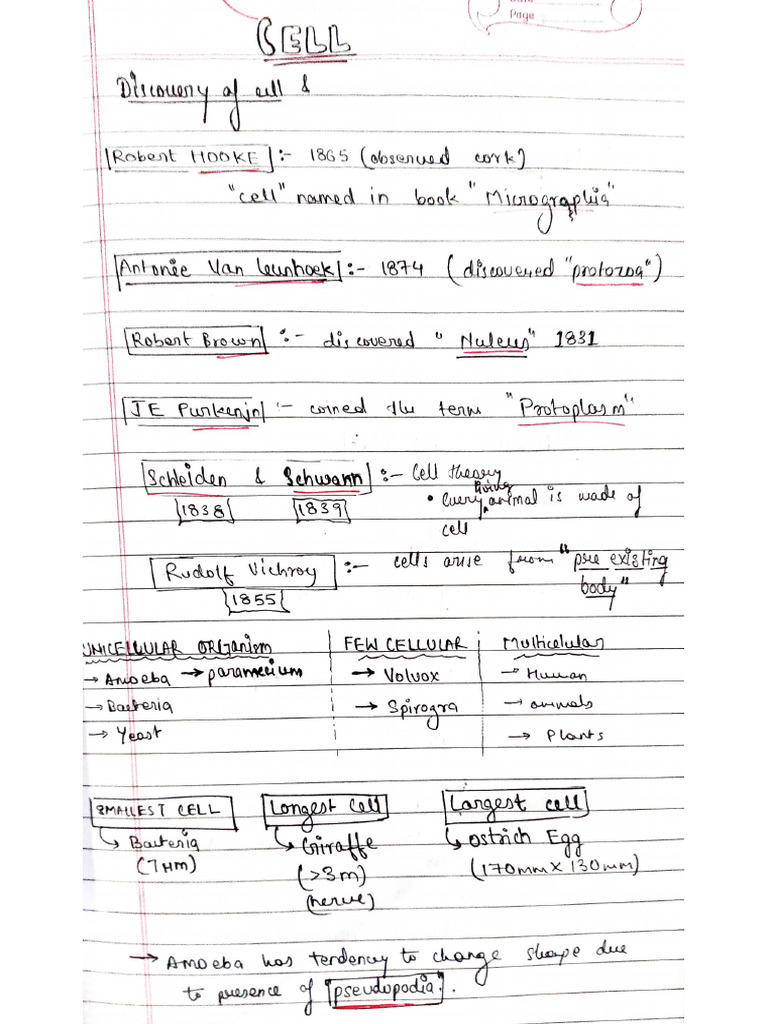 Page
CELL
Discovery of cell &
Robert HOOKE :- 1865 (observed cork)
"cell" named in book "Micrographia"
Antonie Van leunhoek :- 1874 (discovered "protozoa")
Robert Brown :- discovered "Nuleus" 1831
JE Purkenjn :- coined the term "Protoplasm"
Schleiden & Schwann :- Cell theory
1838 1839 • Every living animal is made of
cell
Rudolf Vichroy :- cells arise from "pre existing
1855 body"
UNICELLULAR ORGanism FEW CELLULAR Multicelular
→ Amoeba → paramecium → Volvox → Human
→ Bacteria → Spirogra → animals
→ Yeast → Plants
SMALLEST CELL Longest Cell Largest cell
↳ Bacteria ↳ Giraffe ↳ Ostrich Egg
(>3m) (170mm X 130mm)
(nerve)
→ Amoeba has tendency to change shape due
to presence of "pseudopodia".